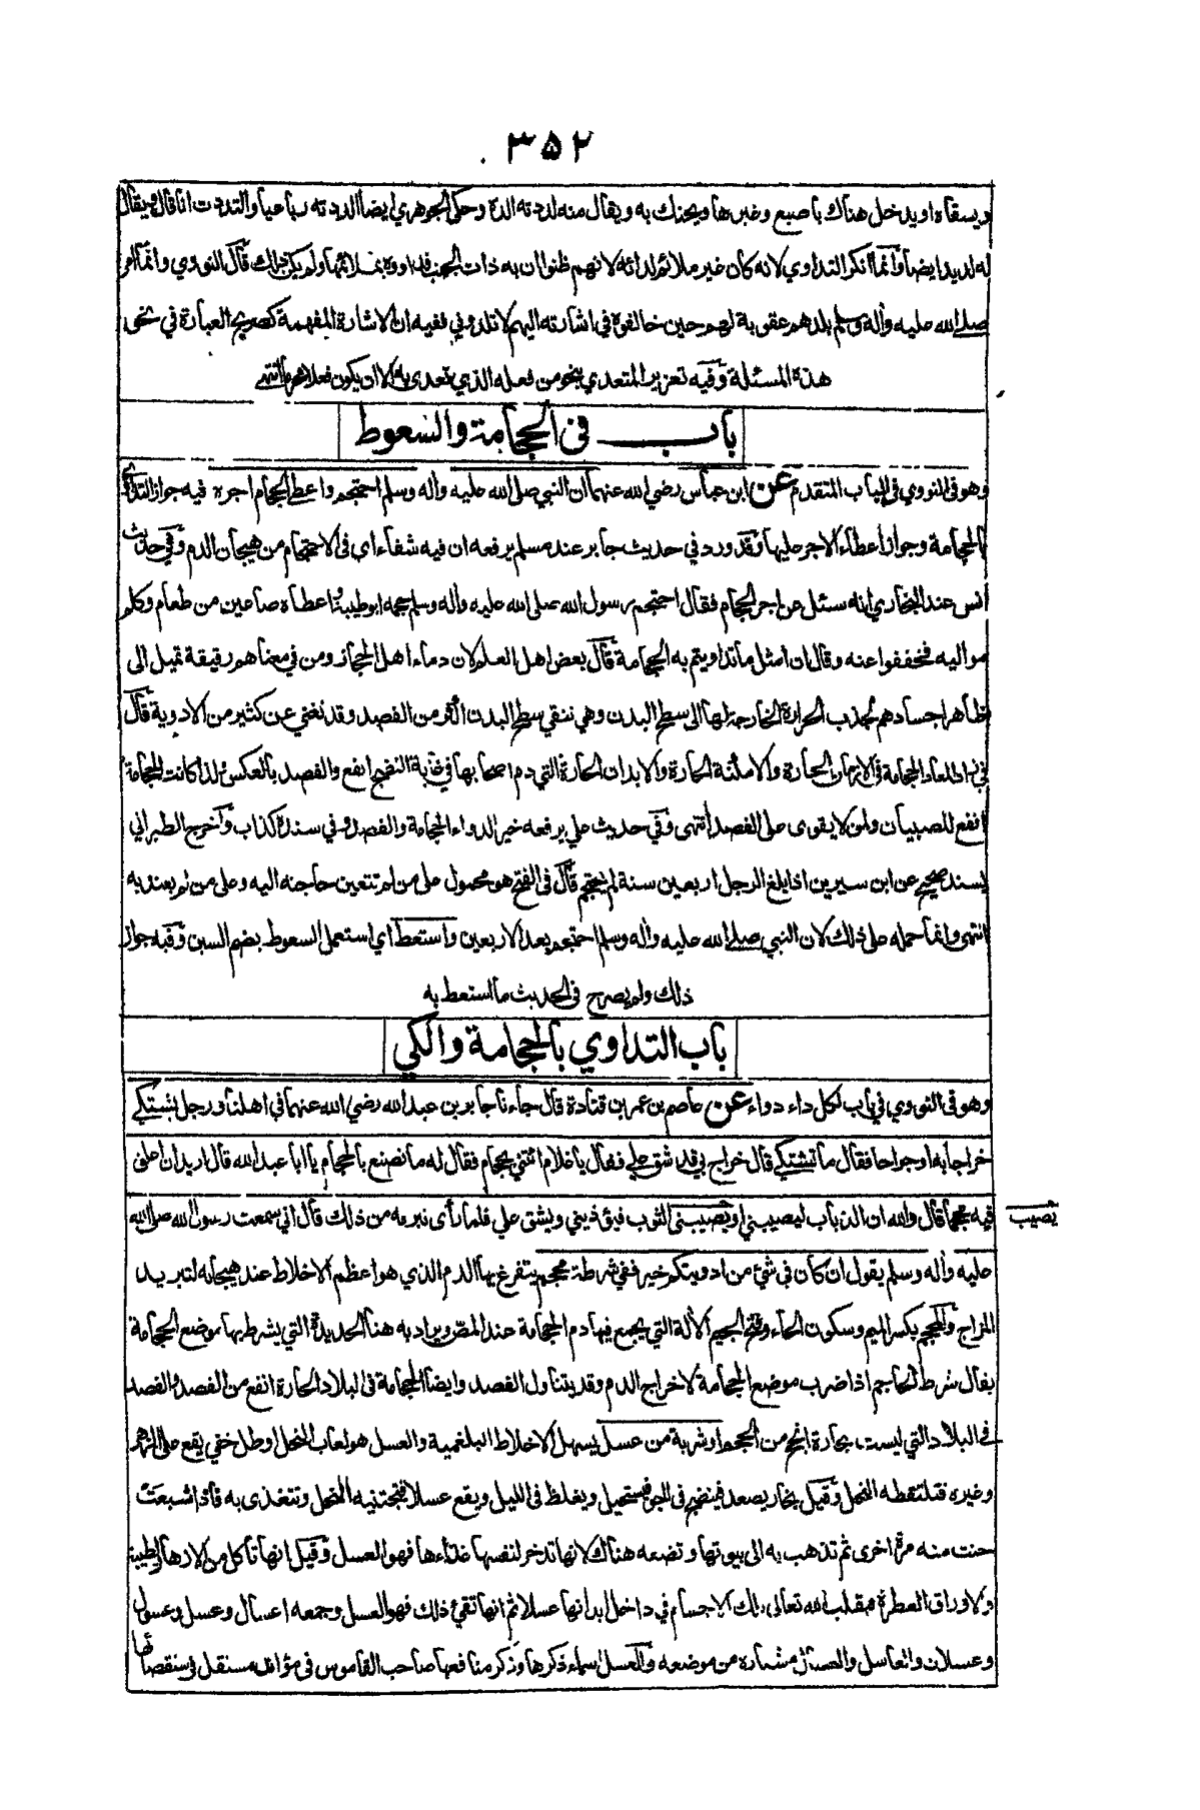 ٣٥٢
ويسقاه او يدخل هناك باصبع وغيرها ويحنك به ويقال منه لددته الدة وحكى الجوهري ايضا الددته رباعيا والتددت انا قال ويقال
له لديد ايضا وانما انكر التداوي لانه كان غير ملائم لدائه لانهم ظنوا ان به ذات الجنب فداووه بما يلائمها ولم يكن ذلك قال النووي وانما امر
صلى الله عليه وأله وسلم بلدهم عقوبة لهم حين خالفوه في اشارته اليهم لا تلدوني ففيه ان الاشارة المفهمة كصريح العبارة في نحو
هذه المسئلة وفيه تعزير المتعدي بنحو من فعله الذي تعدى به الا ان يكون فعلا محرما انتهى
باب في الحجامة والسعوط
وهو في النووي في الباب المتقدم عن ابن عباس رضي الله عنهما ان النبي صلى الله عليه وأله وسلم احتجم واعطى الحجام اجره فيه جواز التداوي
بالحجامة وجواز اعطاء الاجر عليها وقد ورد في حديث جابر عند مسلم يرفعه ان فيه شفاء اي في الاحتجام من هيجان الدم وفي حديث
انس عند البخاري انه سئل عن اجر الحجام فقال احتجم رسول الله صلى الله عليه وأله وسلم حجمه ابو طيبة واعطاه صاعين من طعام وكلم
مواليه فخففوا عنه وقال ان امثل ما تداويتم به الحجامة قال بعض اهل العلم لان دماء اهل الحجاز ومن في معناهم رقيقة تميل الى
ظاهر اجسادهم لجذب الحرارة الخارجة لها الى سطح البدن وهي تنقي سطح البدن اكثر من الفصد وقد تغني عن كثير من الادوية قال
في زاد المعاد الحجامة في الازمان الحارة والامكنة الحارة والابدان الحارة التي دم اصحابها في غاية النضج انفع والفصد بالعكس ولذا كانت الحجامة
انفع للصبيان ولمن لا يقوى على الفصد انتهى وفي حديث علي يرفعه خير الدواء الحجامة والفصد وفي سنده كذاب واخرج الطبراني
بسند صحيح عن ابن سيرين اذا بلغ الرجل اربعين سنة لم يحتجم قال في الفتح هو محمول على من لم تتعين حاجته اليه وعلى من لم يعتد به
انتهى وانما حمله على ذلك لان النبي صلى الله عليه وأله وسلم احتجم بعد الاربعين واستعط اي استعمل السعوط بضم السين وفيه جواز
ذلك ولم يصرح في الحديث ما استعط به
باب التداوي بالحجامة والكي
وهو في النووي في باب لكل داء دواء عن عاصم بن عمر بن قتادة قال جاءنا جابر بن عبد الله رضي الله عنهما في اهلنا ورجل يشتكي
خراجا به او جراحا فقال ما تشتكي قال خراج بي قد شق علي فقال يا غلام ائتني بحجام فقال له ما تصنع بالحجام يا ابا عبد الله قال اريد ان اعلق
فيه محجما قال والله ان الذباب ليصيبني او يصيبني الثوب فيؤذيني ويشق علي فلما رأى تبرمه من ذلك قال اني سمعت رسول الله صلى الله
يصيب
عليه وأله وسلم يقول ان كان في شئ من ادويتكم خير ففي شرطة محجم يتفرغ بها الدم الذي هو اعظم الاخلاط عند هيجانه لتبريد
المزاج والمحجم بكسر الميم وسكون الحاء وفتح الجيم الألة التي يجمع فيها دم الحجامة عند المص ويراد به هنا الحديدة التي يشرط بها موضع الحجامة
يقال شرط الحاجم اذا ضرب موضع الحجامة لاخراج الدم وقد يتناول الفصد وايضا الحجامة في البلاد الحارة انفع من الفصد والفصد
في البلاد التي ليست بحارة انجح من الحجم او شربة من عسل يسهل الاخلاط البلغمية والعسل هو لعاب النحل او طل خفي يقع على الزهر
وغيره فتلتقطه النحل وقيل بخار يصعد فينضج في الجو فيستحيل ويغلظ في الليل ويقع عسلا فتجتنيه النحل وتتغذى به فاذا شبعت
جنت منه مرة اخرى ثم تذهب به الى بيوتها وتضعه هناك لانها تدخر لنفسها غذاءها فهو العسل وقيل انها تاكل من الازهار الطيبة
والاوراق العطرة فيقلب الله تعالى تلك الاجسام في داخل ابدانها عسلا ثم انها تقيئ ذلك فهو العسل وجمعه اعسال وعسل وعسول
وعسلان والعاسل والعسال مشتاره من موضعه وللعسل اسماء ذكرها وذكر منافعها صاحب القاموس في مؤلف مستقل في ستقصائها